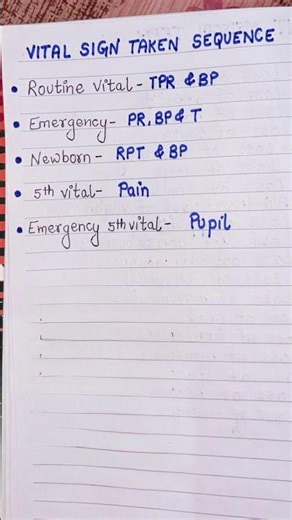 VITAL SIGN TAKEN SEQUENCE
• Routine Vital - TPR & BP
• Emergency - PR, BP & T
• Newborn - RPT & BP
• 5th vital - Pain
• Emergency 5th vital - Pupil